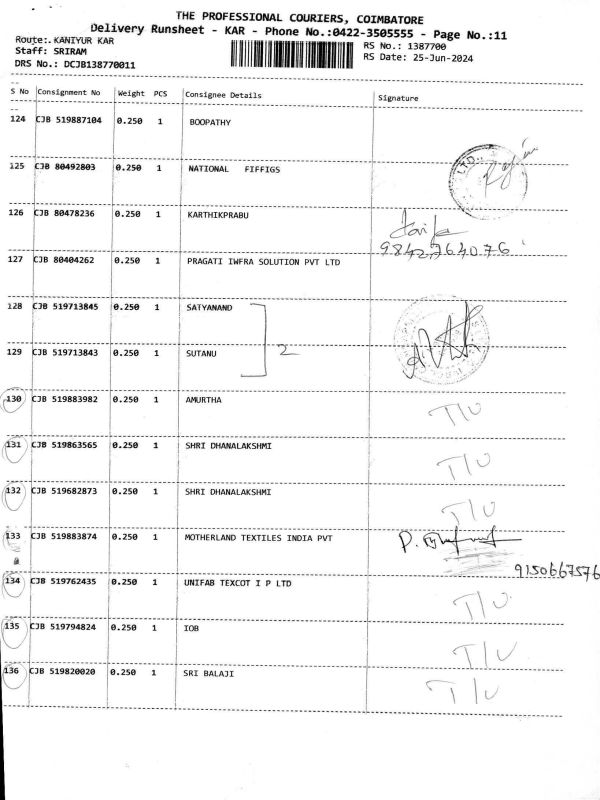 THE PROFESSIONAL COURIERS, COIMBATORE
Delivery Runsheet - KAR - Phone No.:0422-3505555 - Page No.:11
Route:. KANIYUR KAR RS No.: 1387700
Staff: SRIRAM RS Date: 25-Jun-2024
DRS No.: DCJB138770011
S No Consignment No Weight PCS Consignee Details Signature
124 CJB 519887104 0.250 1 BOOPATHY
125 CJB 80492803 0.250 1 NATIONAL FIFFIGS
LTD.
126 CJB 80478236 0.250 1 KARTHIKPRABU
9842764076
127 CJB 80404262 0.250 1 PRAGATI IWFRA SOLUTION PVT LTD
128 CJB 519713845 0.250 1 SATYANAND
2
129 CJB 519713843 0.250 1 SUTANU
130 CJB 519883982 0.250 1 AMURTHA T/U
131 CJB 519863565 0.250 1 SHRI DHANALAKSHMI T/U
132 CJB 519682873 0.250 1 SHRI DHANALAKSHMI T/U
133 CJB 519883874 0.250 1 MOTHERLAND TEXTILES INDIA PVT
9150667576
134 CJB 519762435 0.250 1 UNIFAB TEXCOT I P LTD T/U
135 CJB 519794824 0.250 1 IOB T/U
136 CJB 519820020 0.250 1 SRI BALAJI T/U